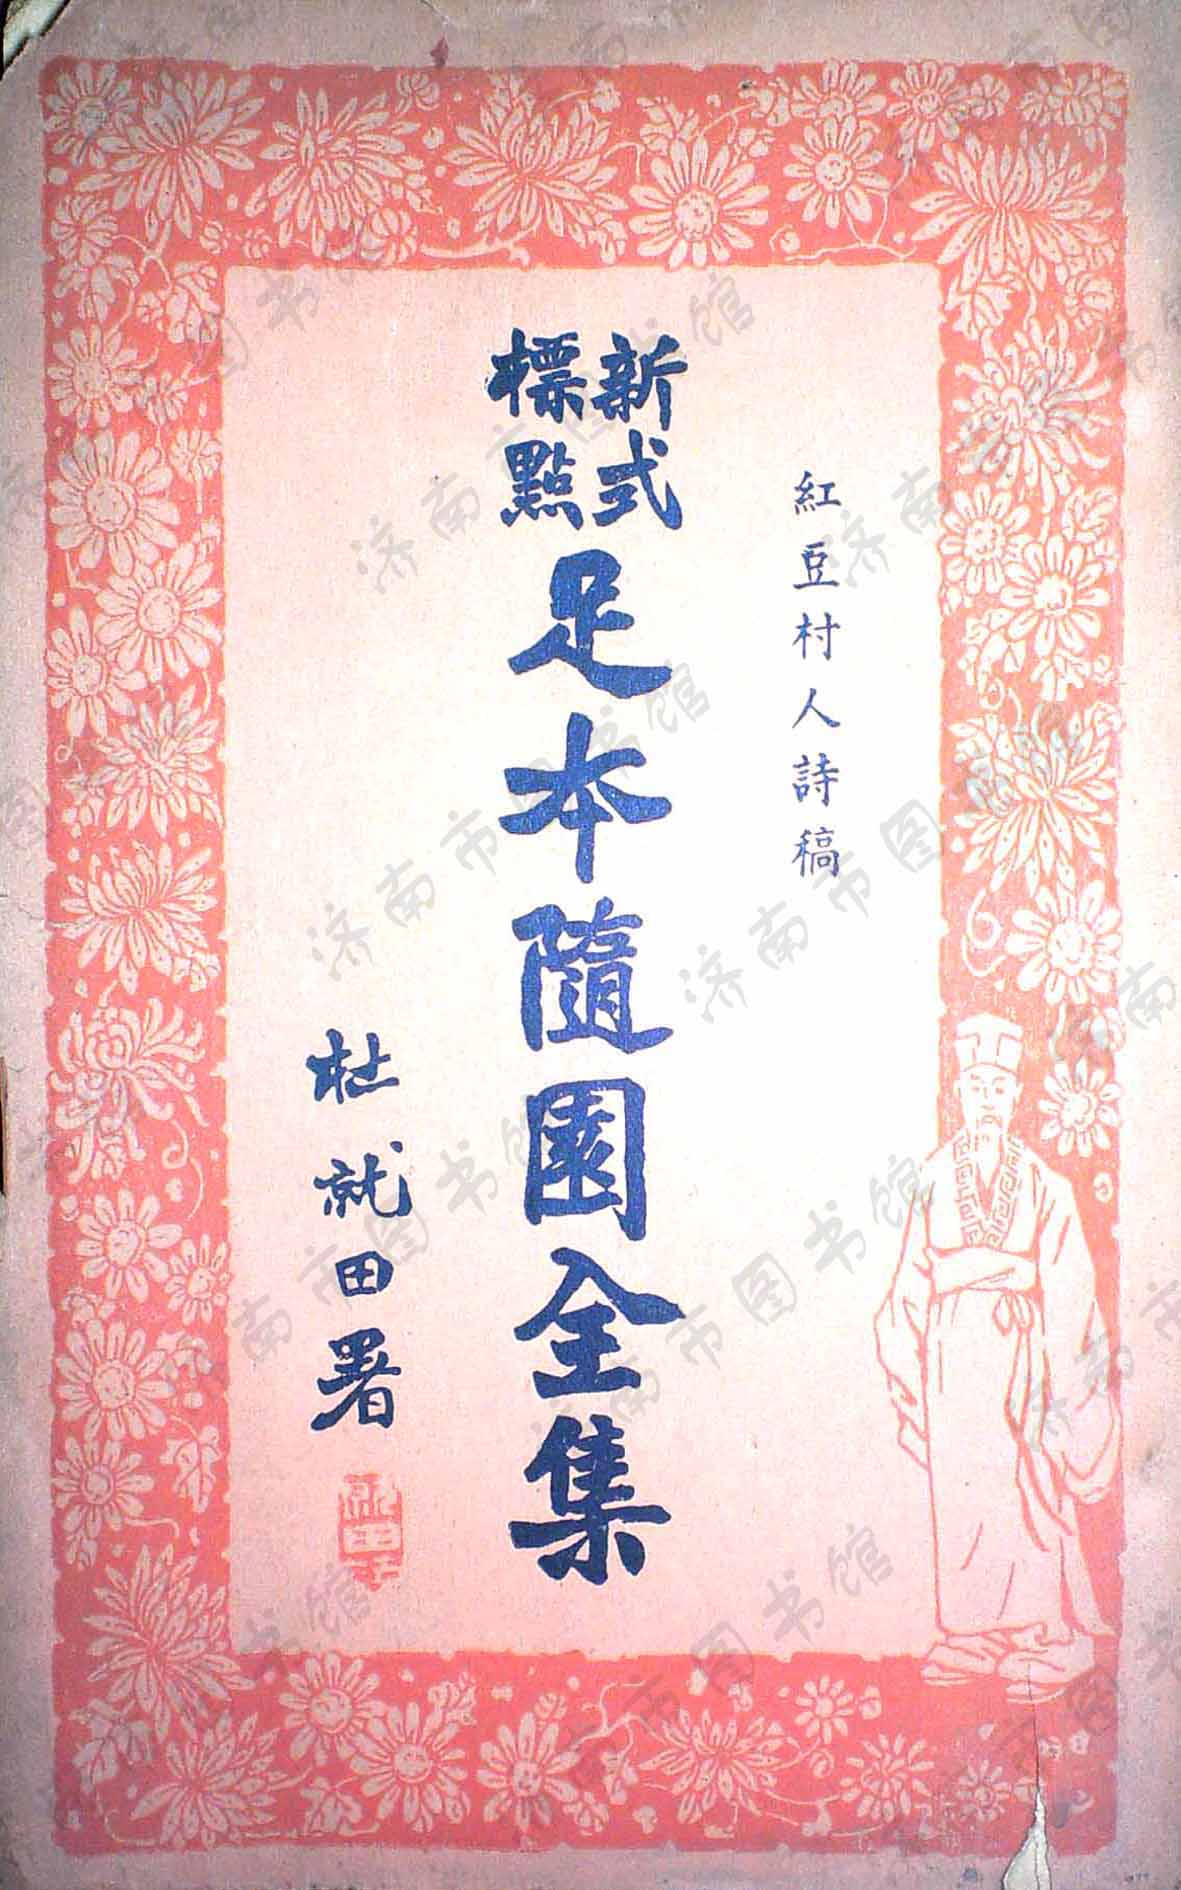 紅豆村人詩稿
新式
標點
足本隨園全集
杜就田署
济南市图书馆